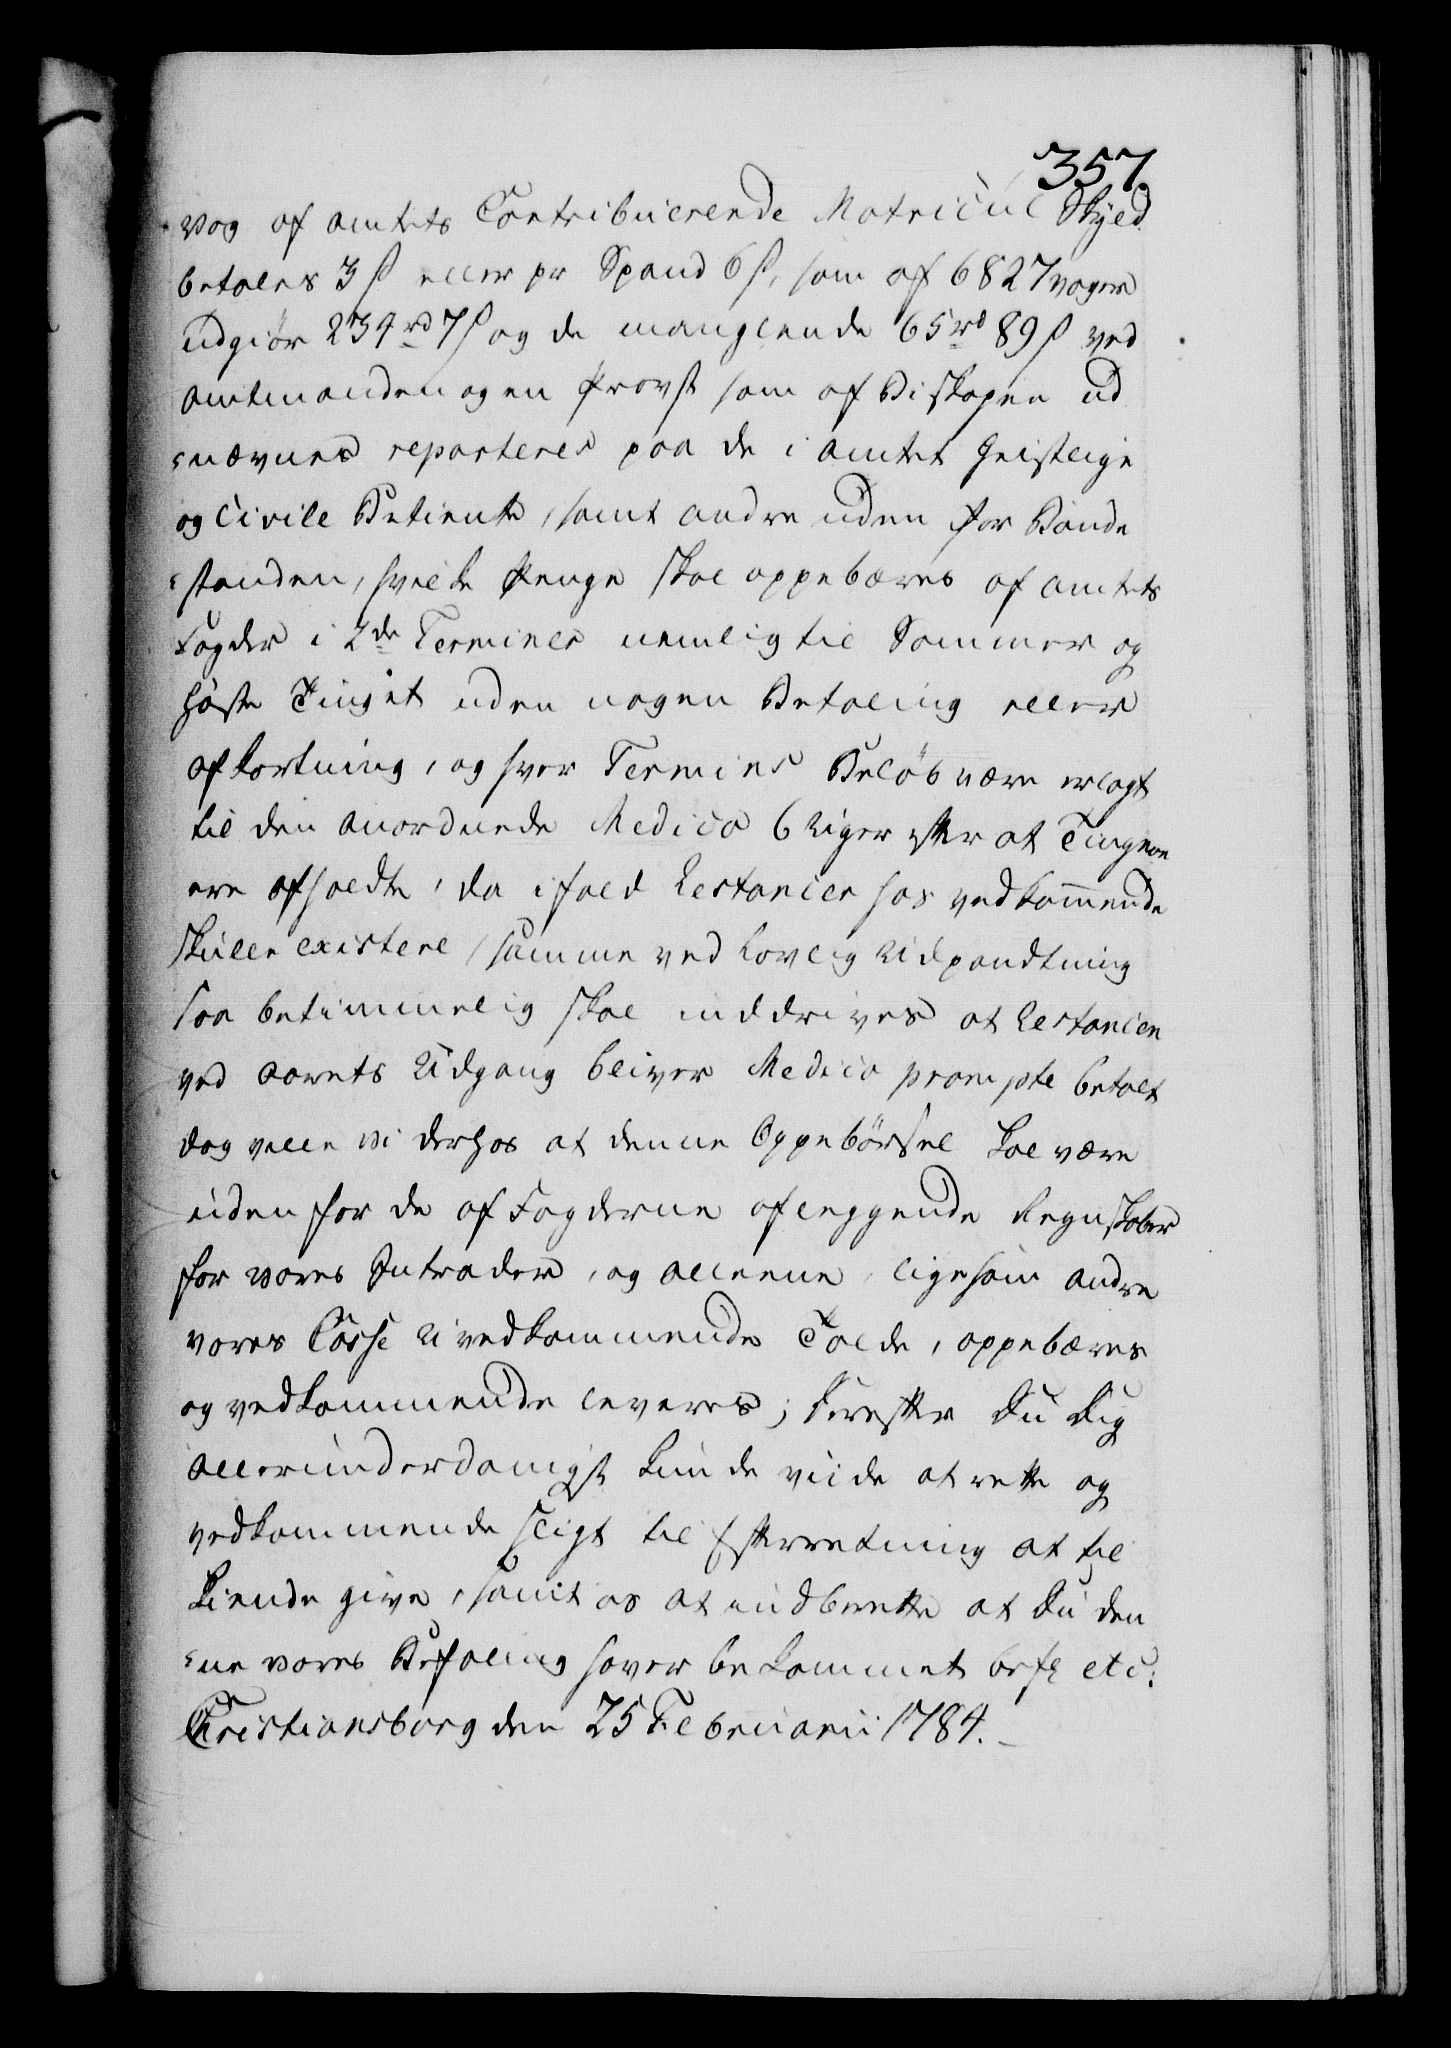 357
Vog af amtets Contribuerende Matricul Skyld
betales 3 ß eller pr Spand 6 ß, som af 6827 voger
udgiør 234 rd 7 ß og de manglende 65 rd 89 ß ved
amtmanden og en Provst som af Biskopen ud
nævnes reparteres paa de i amtet Geistlige
og Civile Betiente, samt andre uden for Bonde
standen, hvilke Penge skal oppebæres af amtets
Fogder i 2de Terminer nemlig til Sommer og
Høste Tinget uden nogen Betaling eller
afkortning, og hver Termins Beløb være erlagt
til den anordnede Medico 6 Uger efter at Tingene
ere afholdte, da ifald Restancer hos vedkommende
skulle existere, samme ved Lovlig Udpandtning
saa betimmelig skal inddrives at Restancen
ved aarets Udgang bliver Medico prompte betalt
dog ville Vi derhos at denne Oppebørsel skal være
uden for de af Fogderne aflæggende Regnskaber
for vores Intrader, og alleene, ligesom andre
vores Casse uvedkommende Told, oppebæres
og vedkommende leveres; Derefter Du Dig
allerunderdanigst kunde vide at rette og
vedkommende sligt til Efterretning at til
kiende give, samt os at indberette at Du den
ne vores Befaling haver bekommet bef: etc:
Christiansborg den 25 Februarii 1784.